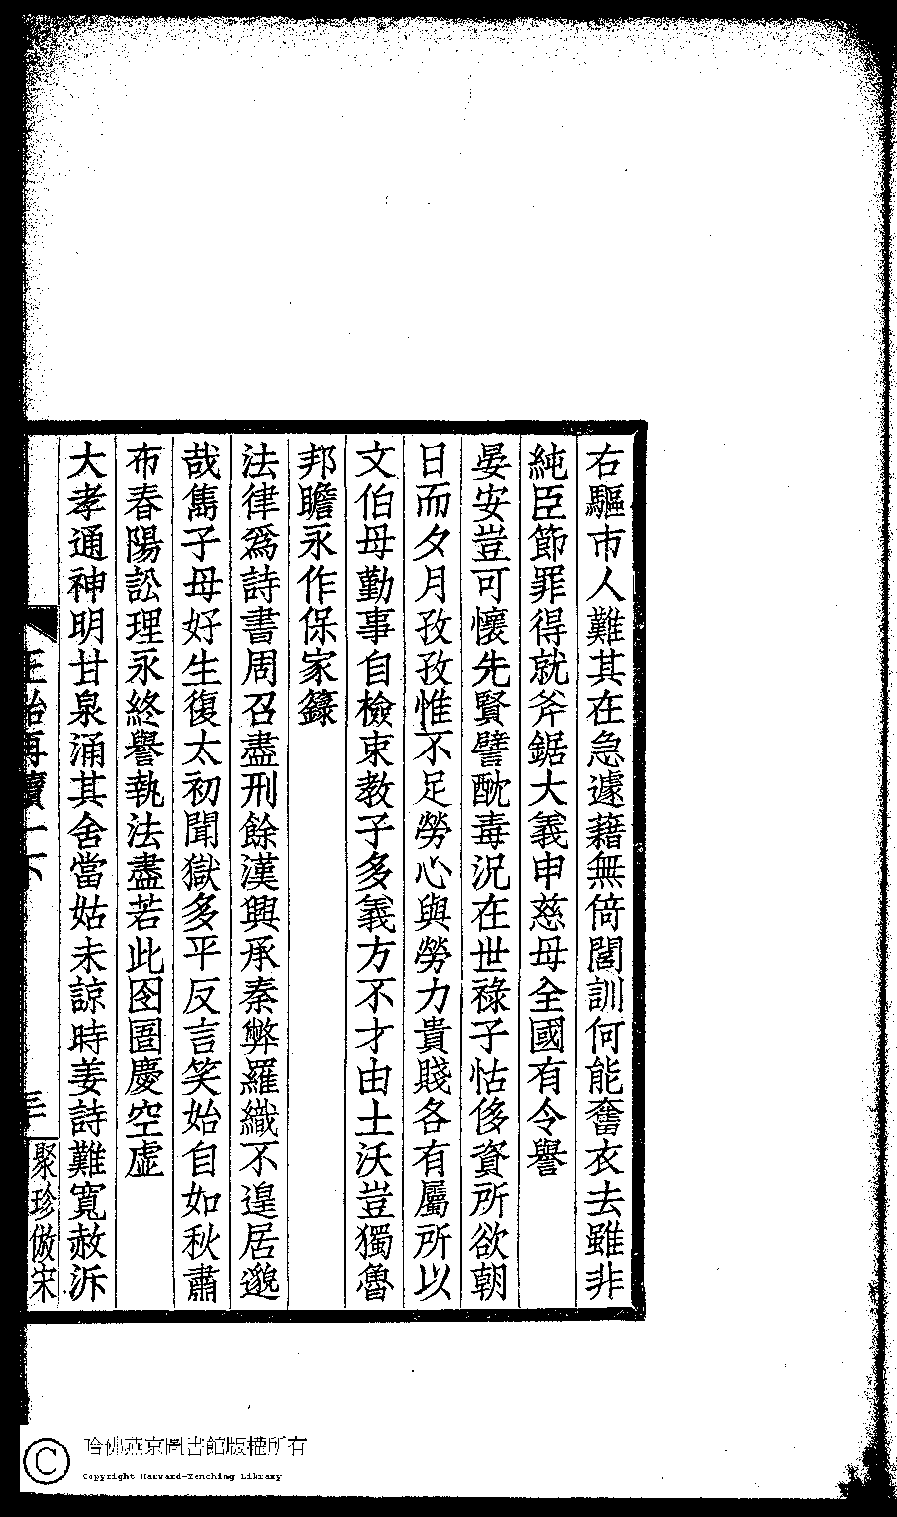 右驅市人難其在急遽藉無倚閭訓何能奮衣去雖非
純臣節罪得就斧鋸大義申慈母全國有令譽
晏安豈可懷先賢譬酖毒況在世祿子怙侈資所欲朝
日而夕月孜孜惟不足勞心與勞力貴賤各有屬所以
文伯母勤事自檢束教子多義方不才由土沃豈獨魯
邦瞻永作保家籙
法律為詩書周召盡刑餘漢興承秦弊羅織不遑居邈
哉雋子母好生復太初聞獄多平反言笑始自如秋肅
布春陽訟理永終譽執法盡若此囹圄慶空虛
大孝通神明甘泉涌其舍當姑未諒時姜詩難寬赦泝
再續一下
聚珍倣宋
哈佛燕京圖書館版權所有
Copyright Harvard-Yenching Library